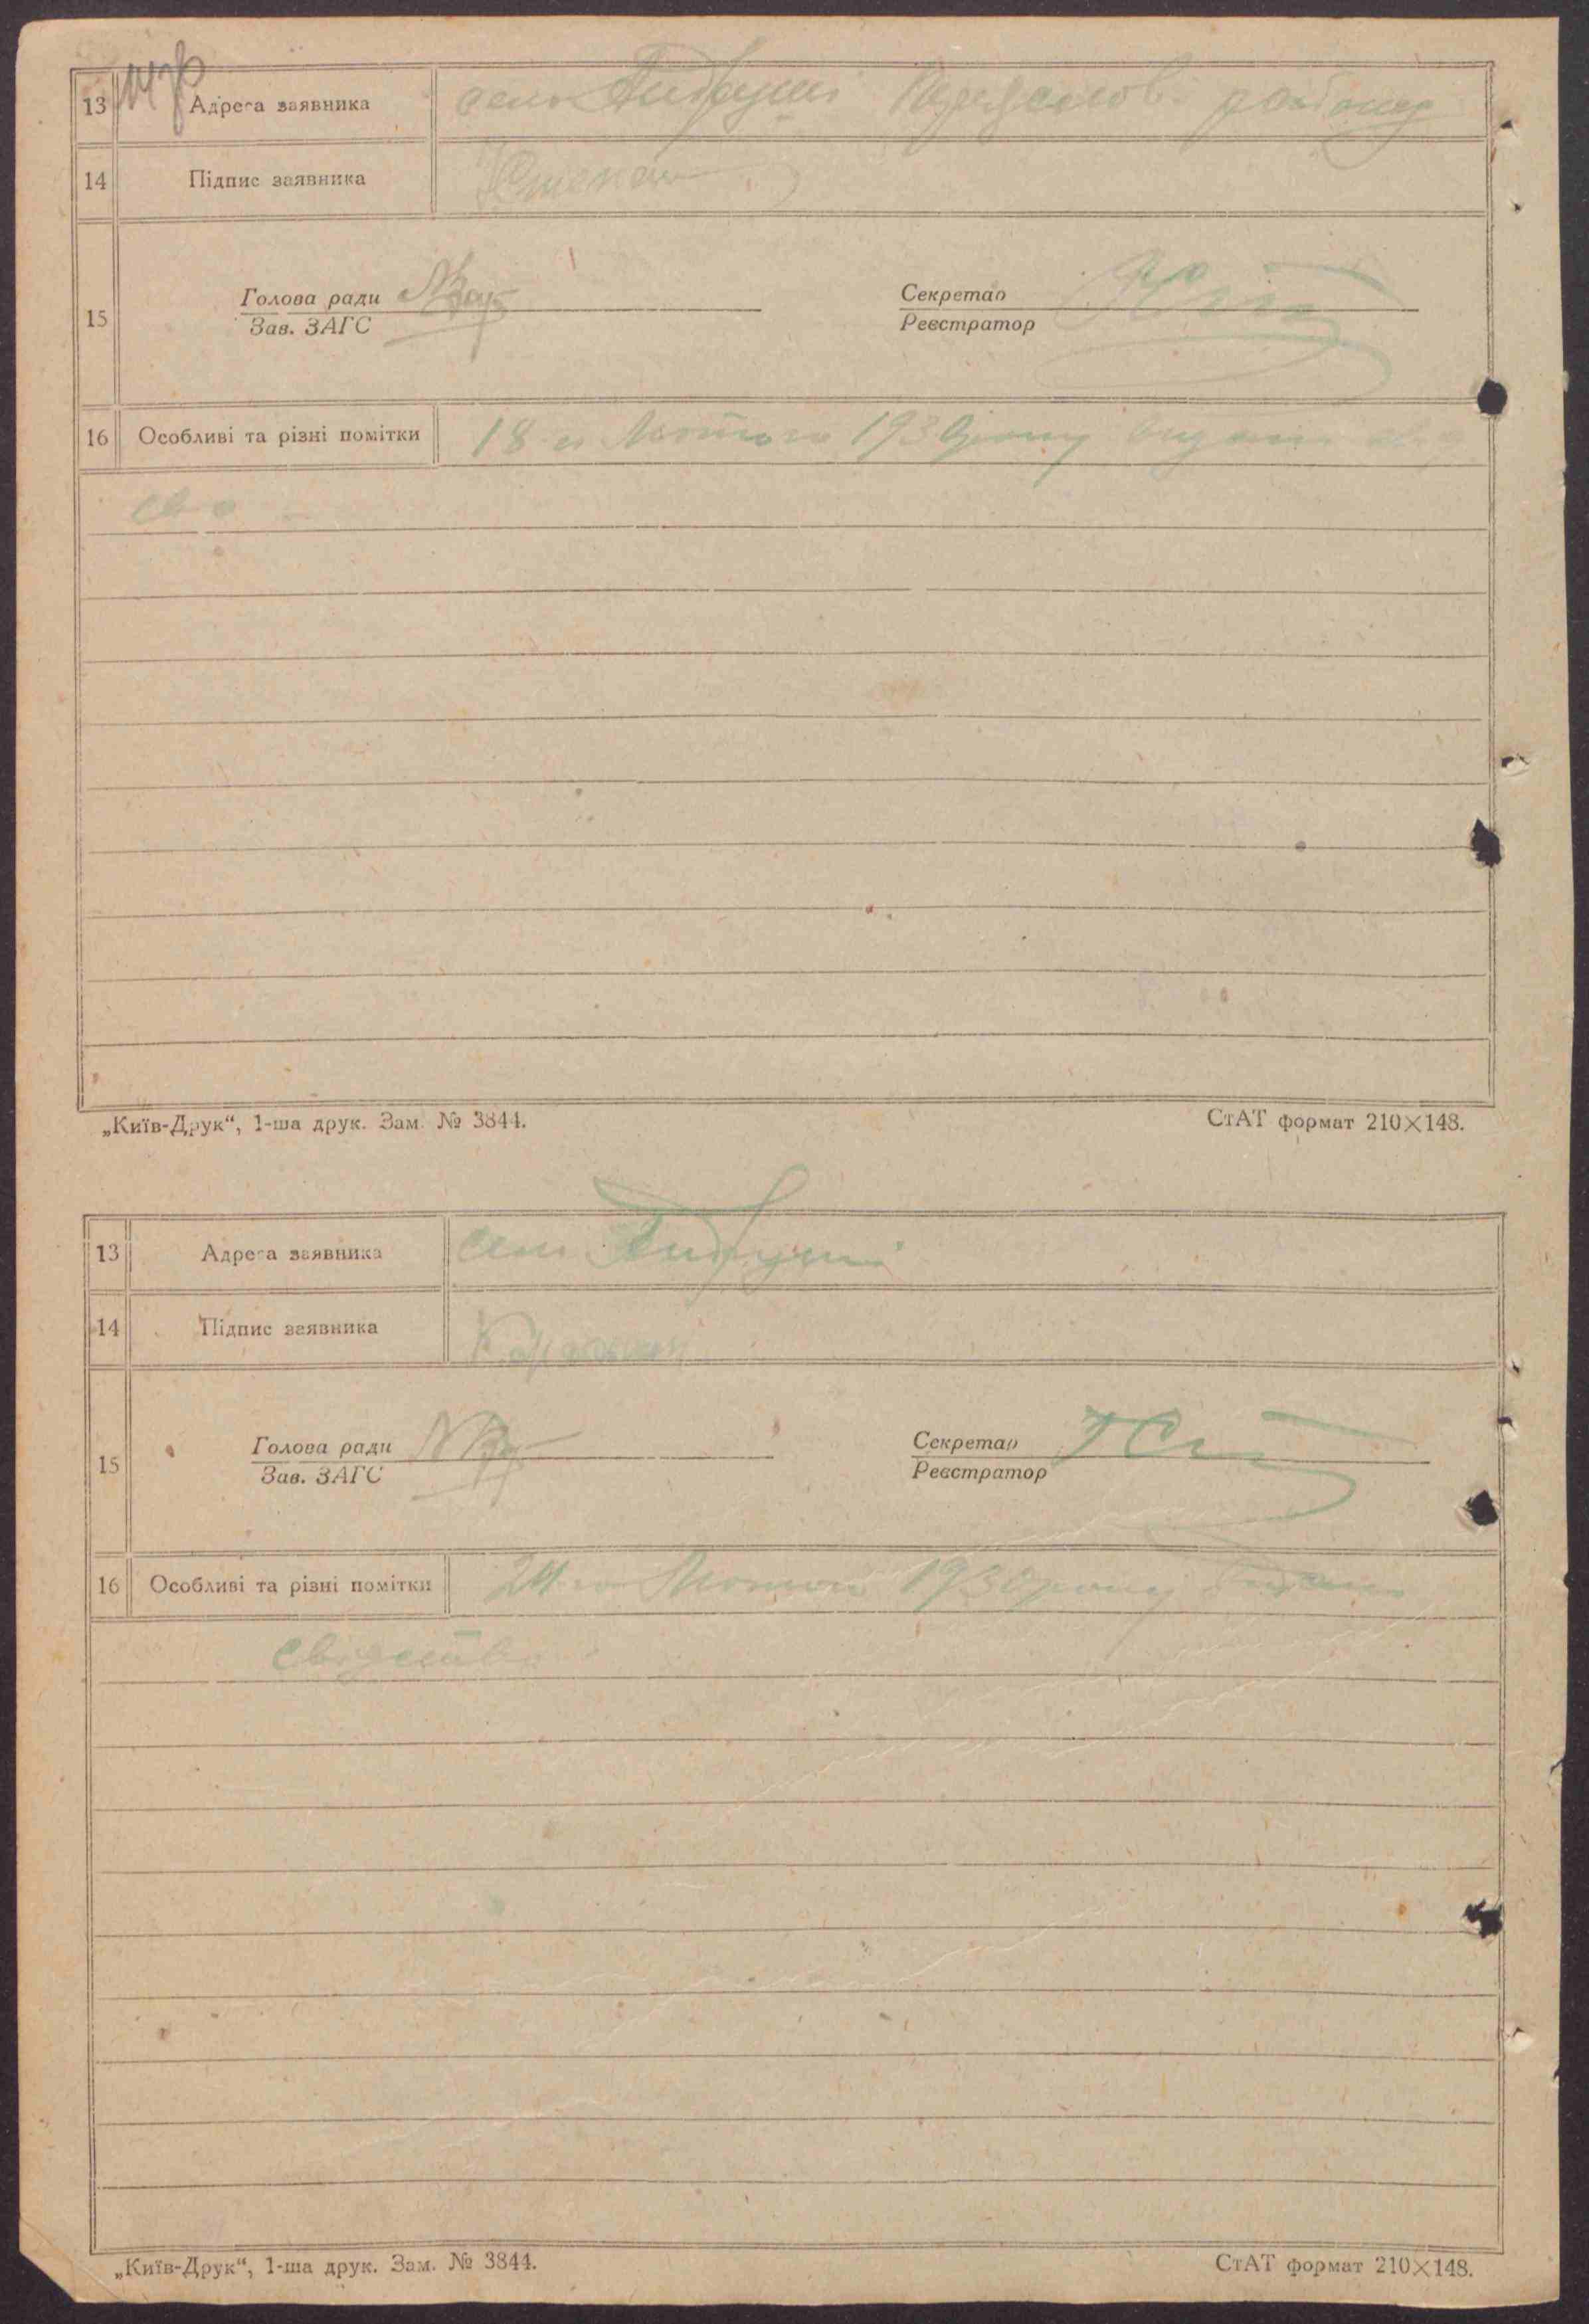 13 Адреса заявника село Андруші Переяслов. району
14 Підпис заявника
15 Голова ради Секретар
Зав. ЗАГС Реєстратор
16 Особливі та різні помітки 18го Лютого 1930 року видано свід
сво
„Київ-Друк“, 1-ша друк. Зам. № 3844. СтАТ формат 210×148.
13 Адреса заявника село Андруші
14 Підпис заявника
15 Голова ради Секретар
Зав. ЗАГС Реєстратор
16 Особливі та різні помітки 24го Лютого 1930 року видано
свідетво
„Київ-Друк“, 1-ша друк. Зам. № 3844. СтАТ формат 210×148.